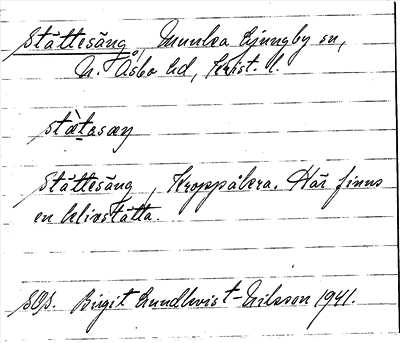 Stättesäng, Munka Ljungby sn,
N. Åsbo hd, Krist. l.
stætasæŋ
Stättesäng, Kroppåkra. Här finns
en klivstätta.
SOS. Birgit Lundkvist-Nilsson 1941.